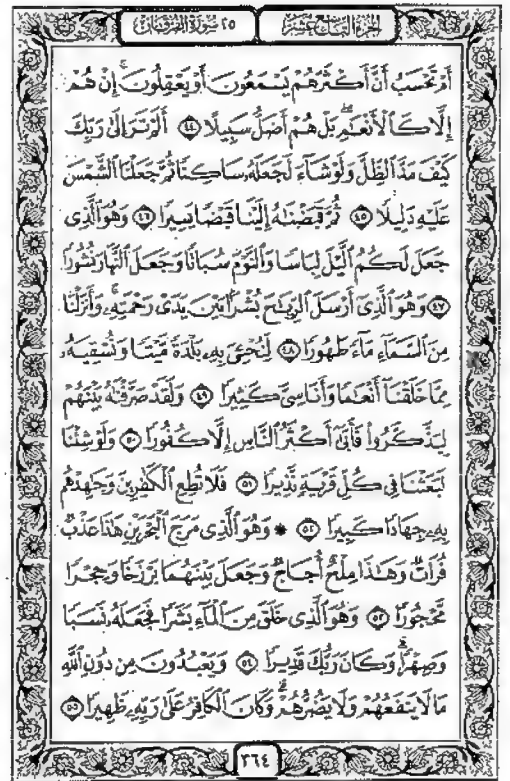 الجزء التاسع عشر
٢٥ سورة الفرقان
أَمْ تَحْسَبُ أَنَّ أَكْثَرَهُمْ يَسْمَعُونَ أَوْ يَعْقِلُونَ ۚ إِنْ هُمْ
إِلَّا كَالْأَنْعَٰمِ ۖ بَلْ هُمْ أَضَلُّ سَبِيلًا ٤٤ أَلَمْ تَرَ إِلَىٰ رَبِّكَ
كَيْفَ مَدَّ الظِّلَّ وَلَوْ شَآءَ لَجَعَلَهُۥ سَاكِنًا ثُمَّ جَعَلْنَا الشَّمْسَ
عَلَيْهِ دَلِيلًا ٤٥ ثُمَّ قَبَضْنَٰهُ إِلَيْنَا قَبْضًا يَسِيرًا ٤٦ وَهُوَ الَّذِى
جَعَلَ لَكُمُ الَّيْلَ لِبَاسًا وَالنَّوْمَ سُبَاتًا وَجَعَلَ النَّهَارَ نُشُورًا
٤٧ وَهُوَ الَّذِىٓ أَرْسَلَ الرِّيَٰحَ بُشْرًۢا بَيْنَ يَدَىْ رَحْمَتِهِۦ ۚ وَأَنزَلْنَا
مِنَ السَّمَآءِ مَآءً طَهُورًا ٤٨ لِّنُحْۦِىَ بِهِۦ بَلْدَةً مَّيْتًا وَنُسْقِيَهُۥ
مِمَّا خَلَقْنَآ أَنْعَٰمًا وَأَنَاسِىَّ كَثِيرًا ٤٩ وَلَقَدْ صَرَّفْنَٰهُ بَيْنَهُمْ
لِيَذَّكَّرُوا۟ فَأَبَىٰٓ أَكْثَرُ النَّاسِ إِلَّا كُفُورًا ٥٠ وَلَوْ شِئْنَا
لَبَعَثْنَا فِى كُلِّ قَرْيَةٍ نَّذِيرًا ٥١ فَلَا تُطِعِ الْكَٰفِرِينَ وَجَٰهِدْهُم
بِهِۦ جِهَادًا كَبِيرًا ٥٢ ۞ وَهُوَ الَّذِى مَرَجَ الْبَحْرَيْنِ هَٰذَا عَذْبٌ
فُرَاتٌ وَهَٰذَا مِلْحٌ أُجَاجٌ وَجَعَلَ بَيْنَهُمَا بَرْزَخًا وَحِجْرًا
مَّحْجُورًا ٥٣ وَهُوَ الَّذِى خَلَقَ مِنَ الْمَآءِ بَشَرًا فَجَعَلَهُۥ نَسَبًا
وَصِهْرًا ۗ وَكَانَ رَبُّكَ قَدِيرًا ٥٤ وَيَعْبُدُونَ مِن دُونِ اللَّهِ
مَا لَا يَنفَعُهُمْ وَلَا يَضُرُّهُمْ ۗ وَكَانَ الْكَافِرُ عَلَىٰ رَبِّهِۦ ظَهِيرًا ٥٥
٣٦٤